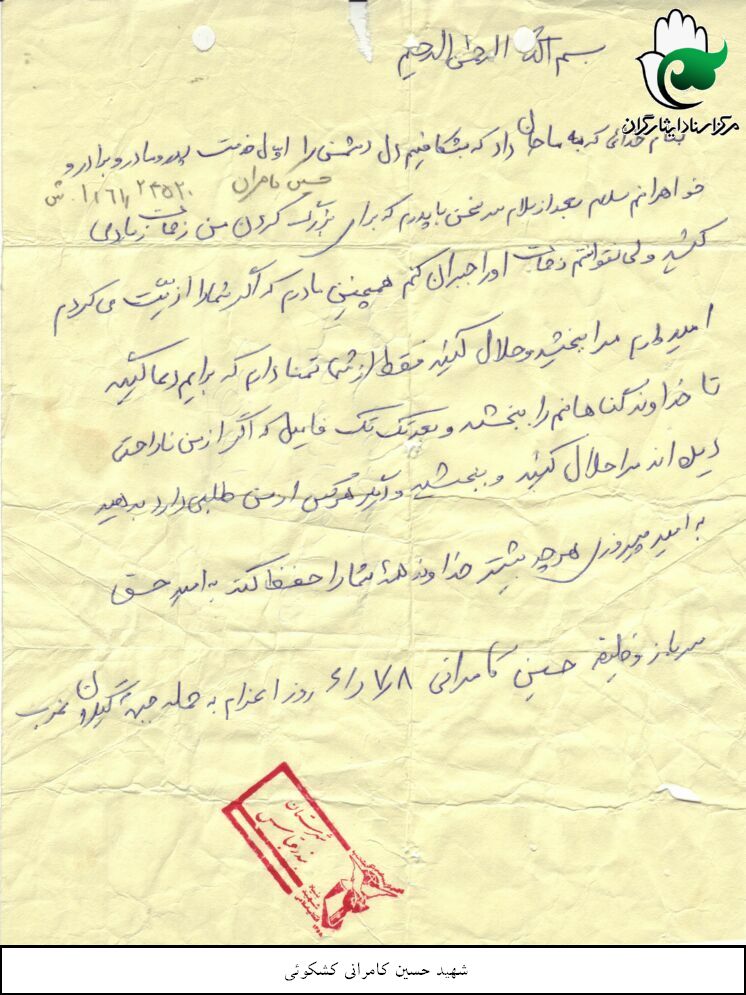 بسم الله الرحمن الرحیم
مرکز اسناد ایثارگران
بنام خدائی که به ما جان داد که بشکافیم دل دشمن را اول خدمت پدر و مادر و برادر و
حسین کامران
خواهرانم سلام بعد از سلام سخن با پدرم که برای بزرگ کردن من زحمات زیادی
کشید ولی نتوانتم زحمات او را جبران کنم همچنین مادرم که اگر شما را ازیت می کردم
امید دارم مرا ببخشید و حلال کنید فقط از شما تمنا دارم که برایم دعا کنید
تا خداوند گناهانم را ببخشد و بعد تک تک فامیل که اگر از من ناراحتی
دیده اند مرا حلال کنند و ببخشند و اگر هرکس از من طلبی دارد بدهید
به امید پیروزی هر چه بیشتر خداوند همۀ شما را حفظ کند به امید حق
سرباز وظیفه حسین کامرانی روز اعزام به حمله جبهۀ گیلان غرب
شهرستان
بندرعباس
شهید حسین کامرانی کشکوئی